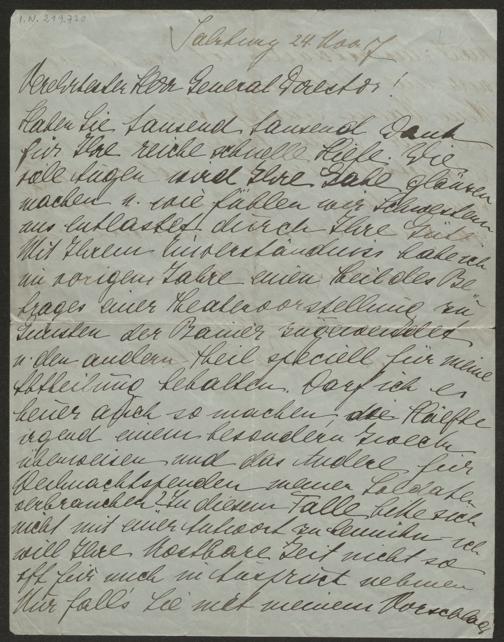 I.N. 219.720
Salzburg 24 Nov
Verehrtester Herr General Director!
Haben Sie tausend tausend Dank
für Ihre reiche schnelle Hilfe. Wie
viele Augen wird Ihre Gabe glänzen
machen u. wie fühlen wir Schwestern
uns entlastet durch Ihre Güte
Mit Ihrem Einverständniss habe ich
im vorigen Jahre einen Theil des Be-
trages einer Theatervorstellung zu
Gunsten der zugewendet
u. den andern Theil speciell für meine
Abtheilung behalten. Darf ich es
heuer auch so machen, die Hälfte
irgend einem besondern Zweck
überweisen und das Andere für
Weihnachtspenden meiner Soldaten
verbrauchen? In diesem Falle bitte sich
nicht mit einer Antwort zu bemühn – ich
will Ihre kostbare Zeit nicht so
oft für mich in Anspruch nehmen
Nur falls Sie mit meinem Vorschlag